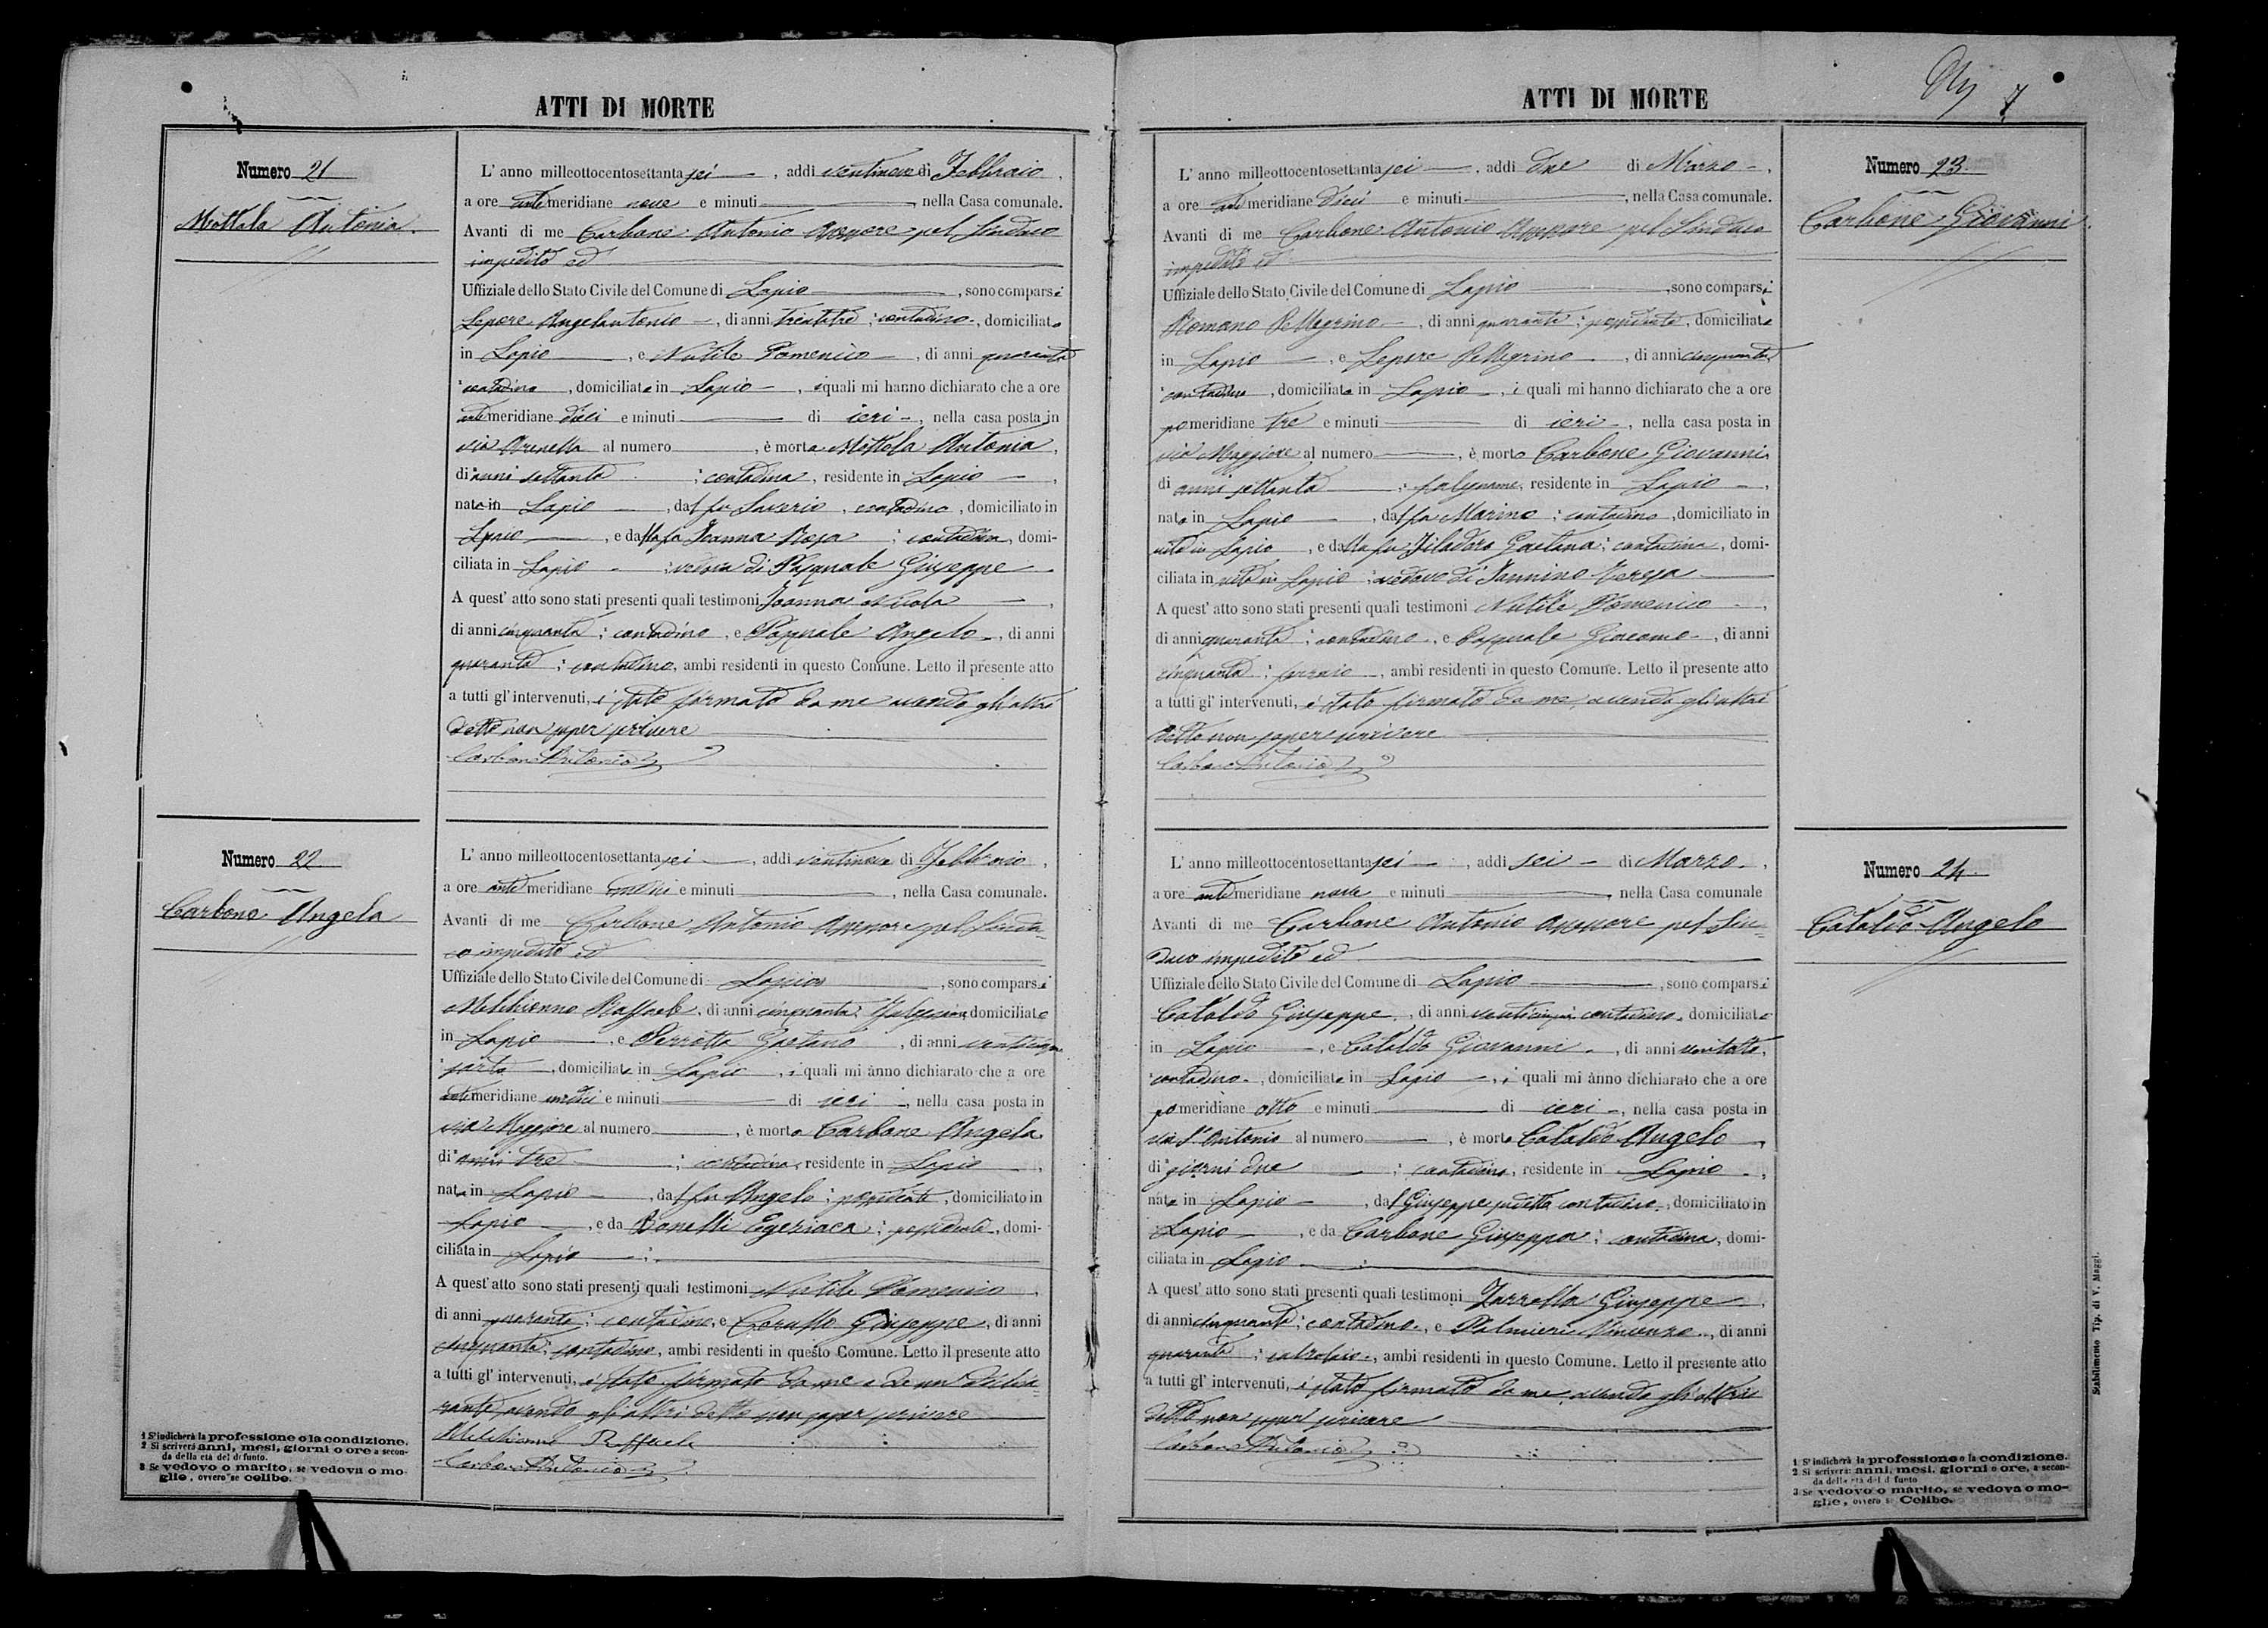 ATTI DI MORTE
Numero 21
Mottola Antonia.
L' anno milleottocentosettanta sei, addi ventinove di Febbraio,
a ore ante meridiane nove e minuti, nella Casa comunale.
Avanti di me Carbone Antonio Assessore pel Sindaco
impedito ed
Uffiziale dello Stato Civile del Comune di Lapio, sono comparsi
Lepore Angelantonio, di anni trentatre; contadino, domiciliato
in Lapio, e Nutile Domenico, di anni quaranta
contadino, domiciliato in Lapio, i quali mi hanno dichiarato che a ore
ante meridiane dieci e minuti di ieri, nella casa posta in
via Arenella al numero, è morta Mottola Antonia,
di anni settanta; contadina, residente in Lapio,
nata in Lapio, dal fu Saverio, contadino, domiciliato in
Lapio, e dalla fu Ioanna Rosa; contadina, domi-
ciliata in Lapio; vedova di Pasquale Giuseppe
A quest' atto sono stati presenti quali testimoni Ioanna Nicola,
di anni cinquanta; contadino, e Pasquale Angelo, di anni
quaranta; contadino, ambi residenti in questo Comune. Letto il presente atto
a tutti gl' intervenuti, è stato firmato da me avendo gli altri
detto non saper scrivere
Carbone Antonio
Numero 22
Carbone Angela
L' anno milleottocentosettanta sei, addi ventinove di Febbraio,
a ore ante meridiane undici e minuti, nella Casa comunale.
Avanti di me Carbone Antonio Assessore pel Sinda-
co impedito ed
Uffiziale dello Stato Civile del Comune di Lapio, sono comparsi
Melchionno Raffaele, di anni cinquanta; falegname domiciliato
in Lapio, e Perrotta Gaetano, di anni
sarto, domiciliato in Lapio, i quali mi ànno dichiarato che a ore
ante meridiane undici e minuti di ieri, nella casa posta in
via Maggiore al numero, è morta Carbone Angela
di anni tre; contadina, residente in Lapio,
nata in Lapio, dal fu Angelo; possidente, domiciliato in
Lapio, e da Bonelli Egeziaca; possidente, domi-
ciliata in Lapio;
A quest' atto sono stati presenti quali testimoni Nutile Domenico,
di anni quaranta; contadino, e Carullo Giuseppe, di anni
cinquanta; contadino, ambi residenti in questo Comune. Letto il presente atto
a tutti gl' intervenuti, è stato firmato da me e da un dichia-
rante avendo gli altri detto non saper scrivere
Melchionno Raffaele
Carbone Antonio
1 S'indicherà la professione o la condizione.
2 Si scriverà anni, mesi, giorni o ore a secon-
da della età del defunto.
3 Se vedovo o marito, se vedova o mo-
glie, ovvero se celibe.
ATTI DI MORTE
7
Numero 23
Carbone Giovanni.
L' anno milleottocentosettanta sei, addi due di Marzo,
a ore ante meridiane dieci e minuti, nella Casa comunale.
Avanti di me Carbone Antonio Assessore pel Sindaco
impedito ed
Uffiziale dello Stato Civile del Comune di Lapio, sono comparsi
Romano Pellegrino, di anni quaranta; possidente, domiciliato
in Lapio, e Lepore Pellegrino, di anni cinquanta,
contadino, domiciliato in Lapio, i quali mi hanno dichiarato che a ore
po meridiane tre e minuti di ieri, nella casa posta in
via Maggiore al numero, è morto Carbone Giovanni,
di anni settanta; falegname, residente in Lapio,
nato in Lapio, dal fu Marino; contadino, domiciliato in
vita in Lapio, e dalla fu Filadoro Gaetana; contadina, domi-
ciliata in vita in Lapio; vedovo di Iannino Teresa
A quest' atto sono stati presenti quali testimoni Nutile Domenico,
di anni quaranta; contadino, e Pasquale Giacomo, di anni
cinquanta; fornaio, ambi residenti in questo Comune. Letto il presente atto
a tutti gl' intervenuti, è stato firmato da me, avendo gli altri
detto non saper scrivere
Carbone Antonio
Numero 24
Cataldo Angelo
L' anno milleottocentosettanta sei, addi sei di Marzo,
a ore ante meridiane nove e minuti, nella Casa comunale
Avanti di me Carbone Antonio Assessore pel Sin-
daco impedito ed
Uffiziale dello Stato Civile del Comune di Lapio, sono comparsi
Cataldo Giuseppe, di anni venticinque contadino, domiciliato
in Lapio, e Cataldo Giovanni, di anni ventotto,
contadino, domiciliato in Lapio, i quali mi ànno dichiarato che a ore
po meridiane otto e minuti di ieri, nella casa posta in
via S. Antonio al numero, è morto Cataldo Angelo,
di giorni due; contadino, residente in Lapio,
nato in Lapio, dal Giuseppe suddetto contadino, domiciliato in
Lapio, e da Carbone Giuseppa; contadina, domi-
ciliata in Lapio;
A quest' atto sono stati presenti quali testimoni Zarrella Giuseppe,
di anni cinquanta; contadino, e Palmieri Vincenzo, di anni
quaranta; calzolaio, ambi residenti in questo Comune. Letto il presente atto
a tutti gl' intervenuti, è stato firmato da me, avendo gli altri
detto non saper scrivere
Carbone Antonio
1 S' indicherà la professione o la condizione.
2 Si scriverà: anni, mesi, giorni o ore, a secon-
da della età del defunto
3 Se vedovo o marito, se vedova o mo-
glie, ovvero se Celibe.
Stabilimento Tip. di V. Maggi.